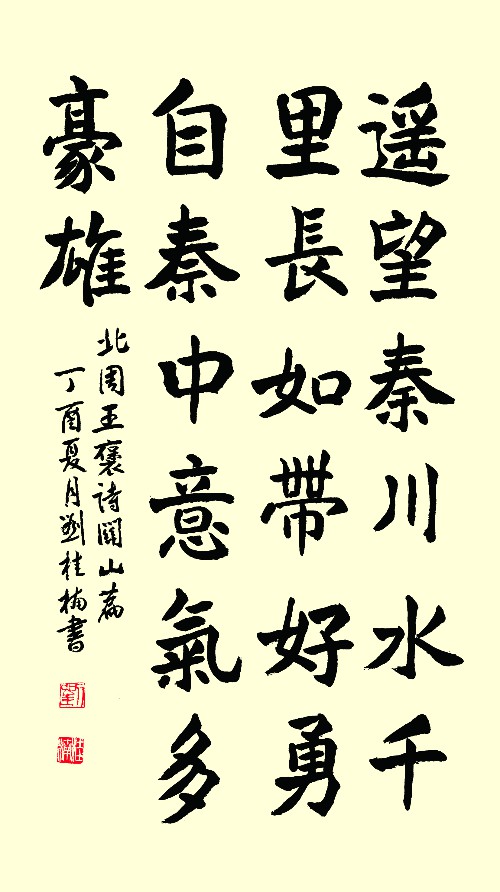 遥望秦川水千
里長如帶好勇
自秦中意氣多
豪雄
北周王褒詩關山篇
丁酉夏月劉桂楠書